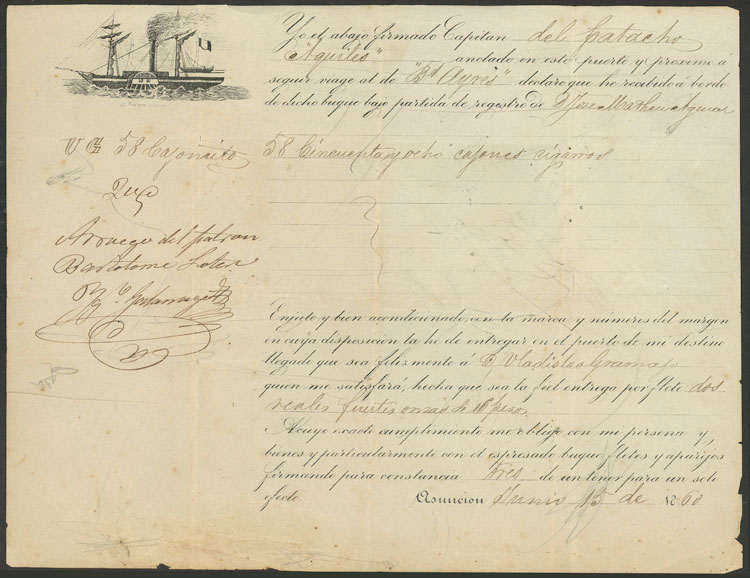 Yo el abajo firmado Capitan del Patacho
"Aquiles" anclado en este puerto y proximo á
seguir viage al de "Bs Ayres" declaro que he recibido á bordo
de dicho buque bajo partida de registro de
58 Cajoncito
58 Cincuenta y ocho cajones cigarros
Aruego del patron
Bartolomé
Enjuto y bien acondicionado, con la marca y números del margen
en cuya disposicion la he de entregar en el puerto de mi destino
llegado que sea felizmente á D. Vladislao Gramajo
quien me satisfará, hecha que sea la fiel entrega por flete dos
reales fuertes onzas de 16 pesos
A cuyo exacto cumplimiento me obligo con mi persona y
bienes y particularmente con el espresado buque fletes y aparejos
firmando para constancia tres de un tenor para un solo
efecto. Asuncion Junio 15 de 1860